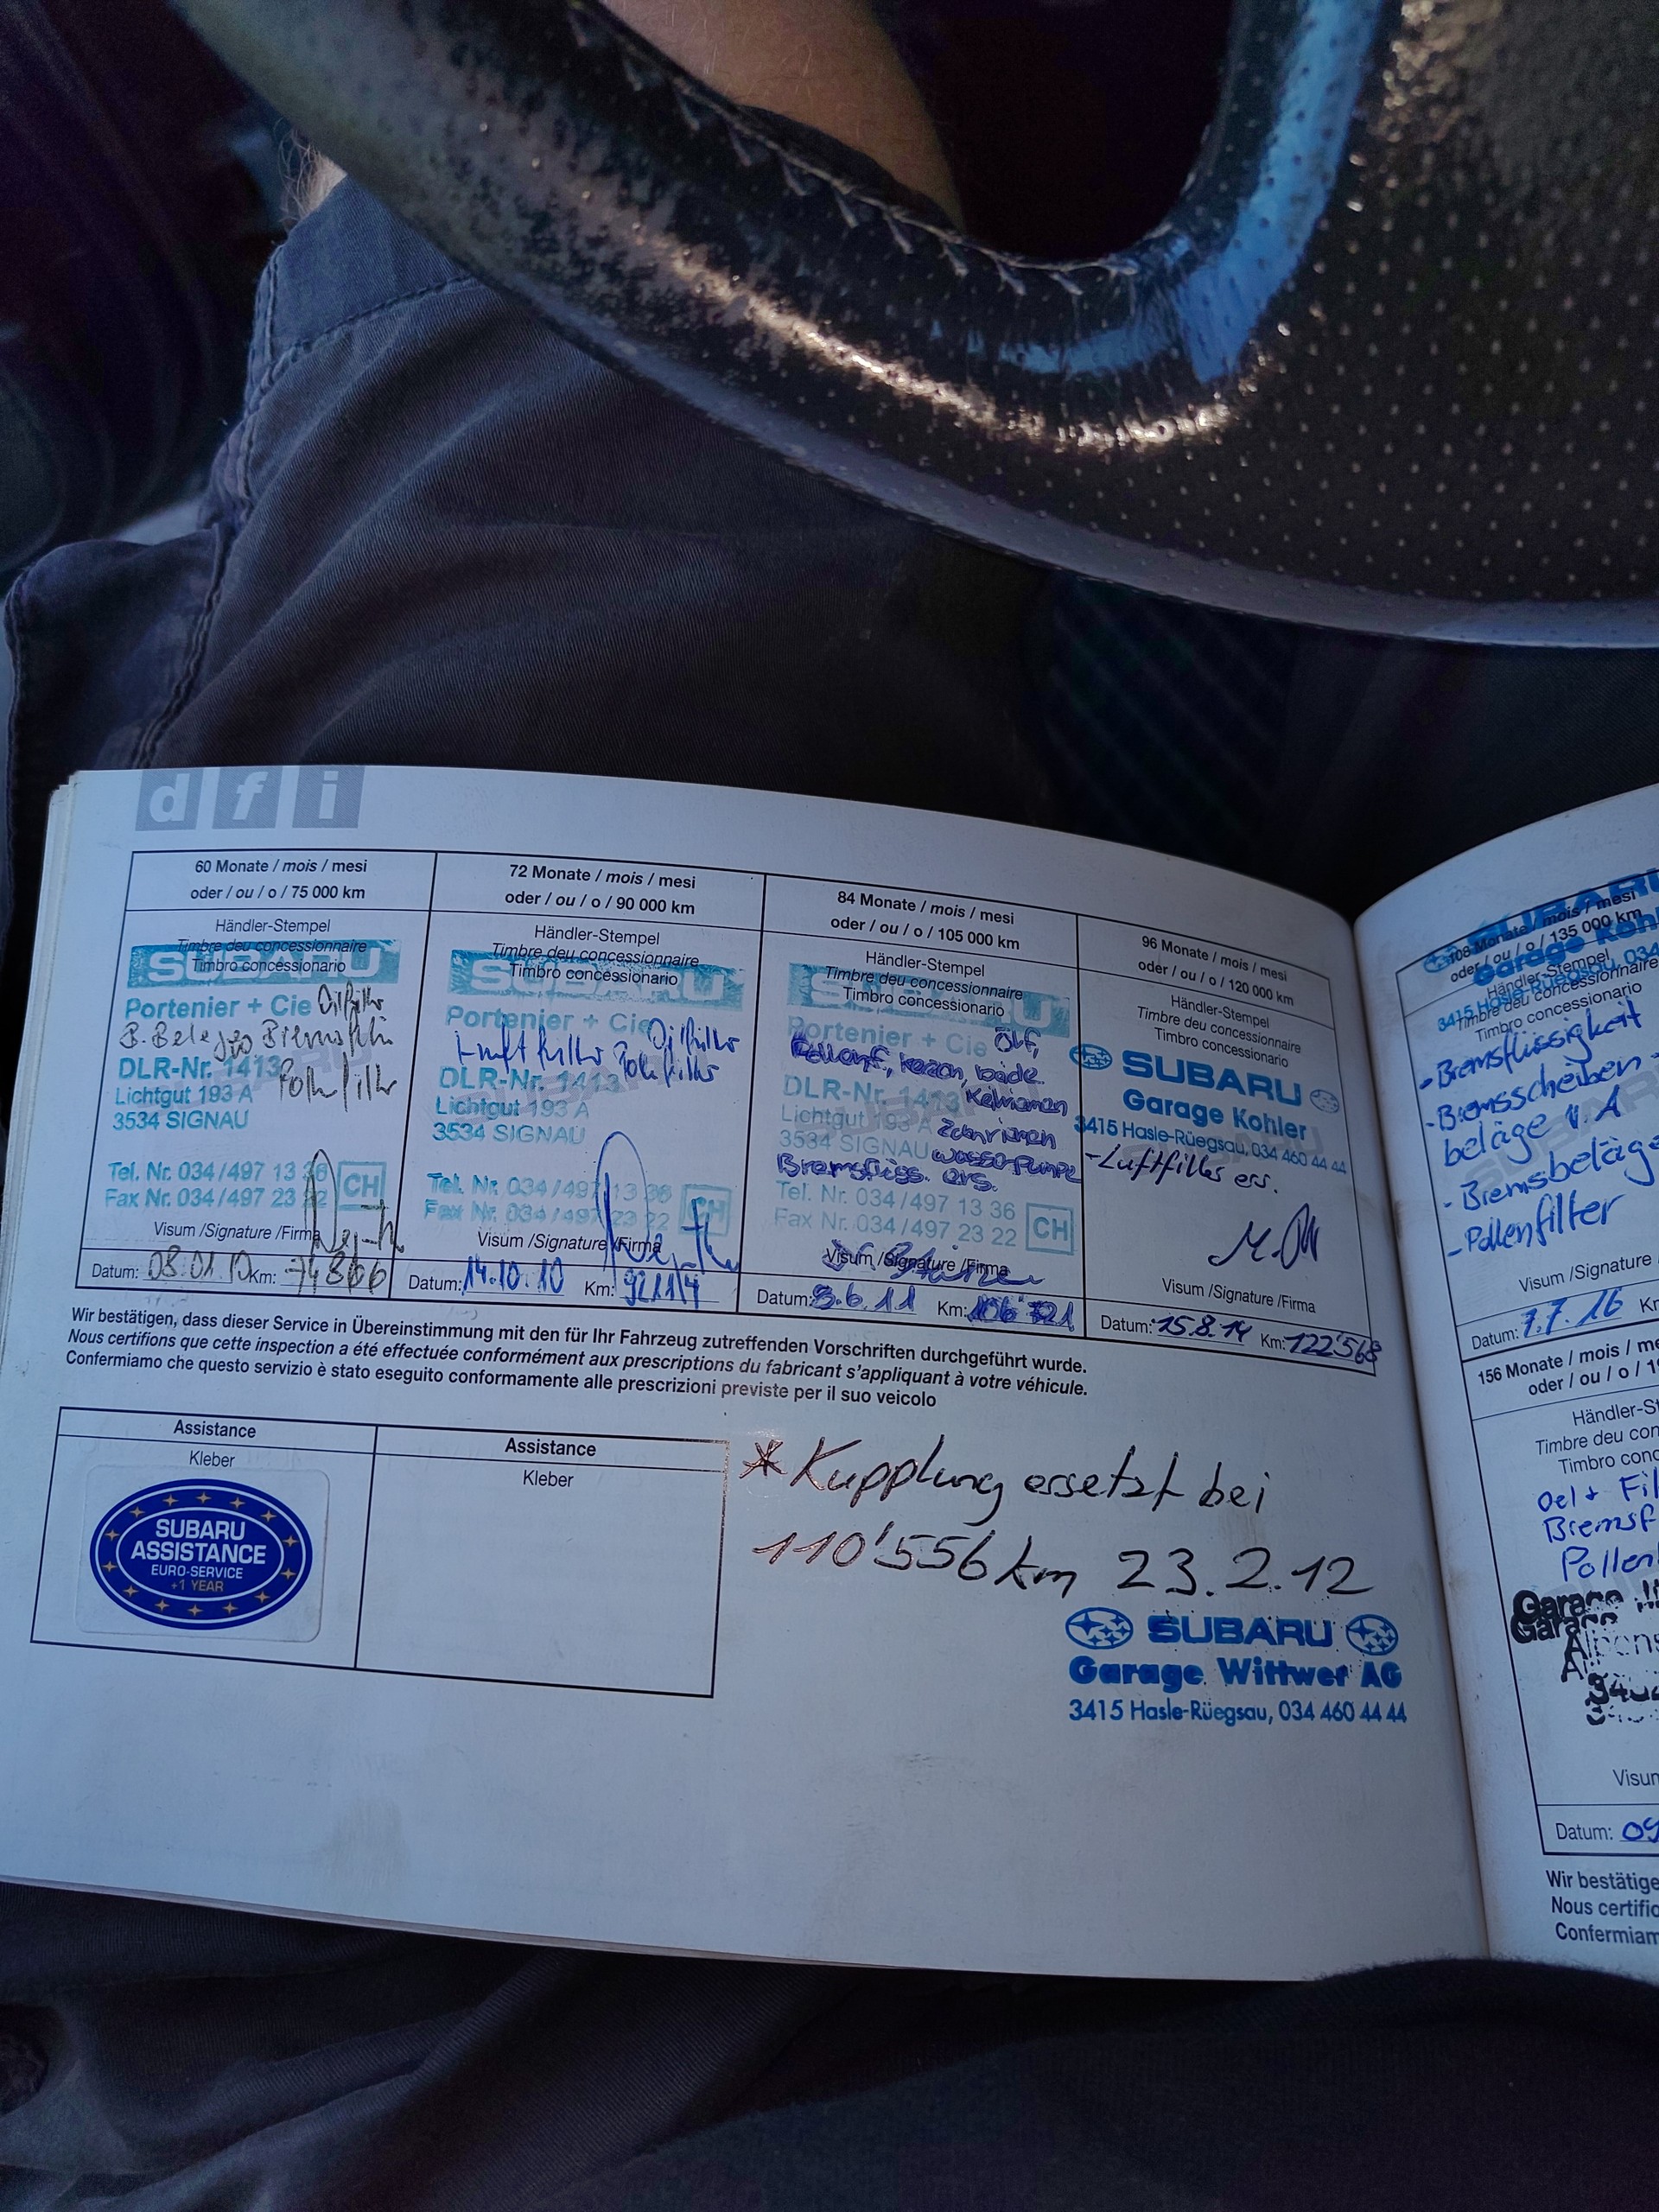 dfi
60 Monate / mois / mesi
oder / ou / o / 75 000 km
Händler-Stempel
Timbre deu concessionnaire
Timbro concessionario
SUBARU
Portenier + Cie Oilfilter
B. Belege Bremsflü
DLR-Nr. 1413
Pollenfilter
Lichtgut 193 A
3534 SIGNAU
Tel. Nr. 034/497 13 36
Fax Nr. 034/497 23 22
CH
Visum /Signature /Firma
Datum: 08.01.10 Km: 74866
72 Monate / mois / mesi
oder / ou / o / 90 000 km
Händler-Stempel
Timbre deu concessionnaire
Timbro concessionario
SUBARU
Portenier + Cie Oilfilter
Luftfilter Pollenfilter
DLR-Nr. 1413
Lichtgut 193 A
3534 SIGNAU
Tel. Nr. 034/497 13 36
Fax Nr. 034/497 23 22
CH
Visum /Signature /Firma
Datum: 14.10.10 Km:
84 Monate / mois / mesi
oder / ou / o / 105 000 km
Händler-Stempel
Timbre deu concessionnaire
Timbro concessionario
SUBARU
Portenier + Cie Ölf,
Pollenf, kerzen, beide
DLR-Nr. 1413 Keilriemen
Lichtgut 193 A Zahnriemen
3534 SIGNAU Wasserpumpe
Bremsflüss. ers.
Tel. Nr. 034/497 13 36
Fax Nr. 034/497 23 22
CH
Visum /Signature /Firma
Datum: 3.6.11 Km:
96 Monate / mois / mesi
oder / ou / o / 120 000 km
Händler-Stempel
Timbre deu concessionnaire
Timbro concessionario
SUBARU
Garage Kohler
3415 Hasle-Rüegsau, 034 460 44 44
-Luftfilter ers.
Visum /Signature /Firma
Datum: 15.8.14 Km: 122'568
Wir bestätigen, dass dieser Service in Übereinstimmung mit den für Ihr Fahrzeug zutreffenden Vorschriften durchgeführt wurde.
Nous certifions que cette inspection a été effectuée conformément aux prescriptions du fabricant s'appliquant à votre véhicule.
Confermiamo che questo servizio è stato eseguito conformamente alle prescrizioni previste per il suo veicolo
Assistance
Kleber
SUBARU
ASSISTANCE
EURO-SERVICE
+1 YEAR
Assistance
Kleber
* Kupplung ersetzt bei
110'556 km 23.2.12
SUBARU
Garage Wittwer AG
3415 Hasle-Rüegsau, 034 460 44 44
SUBARU
108 Monate / mois / mesi
oder / ou / o / 135 000 km
Garage Kohl
3415 Hasle-Rüegsau, 034
Händler-Stempel
Timbre deu concessionnaire
Timbro concessionario
- Bremsflüssigkeit
- Bremsscheiben
beläge v. A
- Bremsbeläge
- Pollenfilter
Visum /Signature /
Datum: 7.7.16 K
156 Monate / mois / me
oder / ou / o / 1
Händler-St
Timbre deu con
Timbro conc
Oel + Fil
Bremsf
Pollen
Garage
Garage
Alpens
Visum
Datum: 09
Wir bestätige
Nous certific
Confermiam